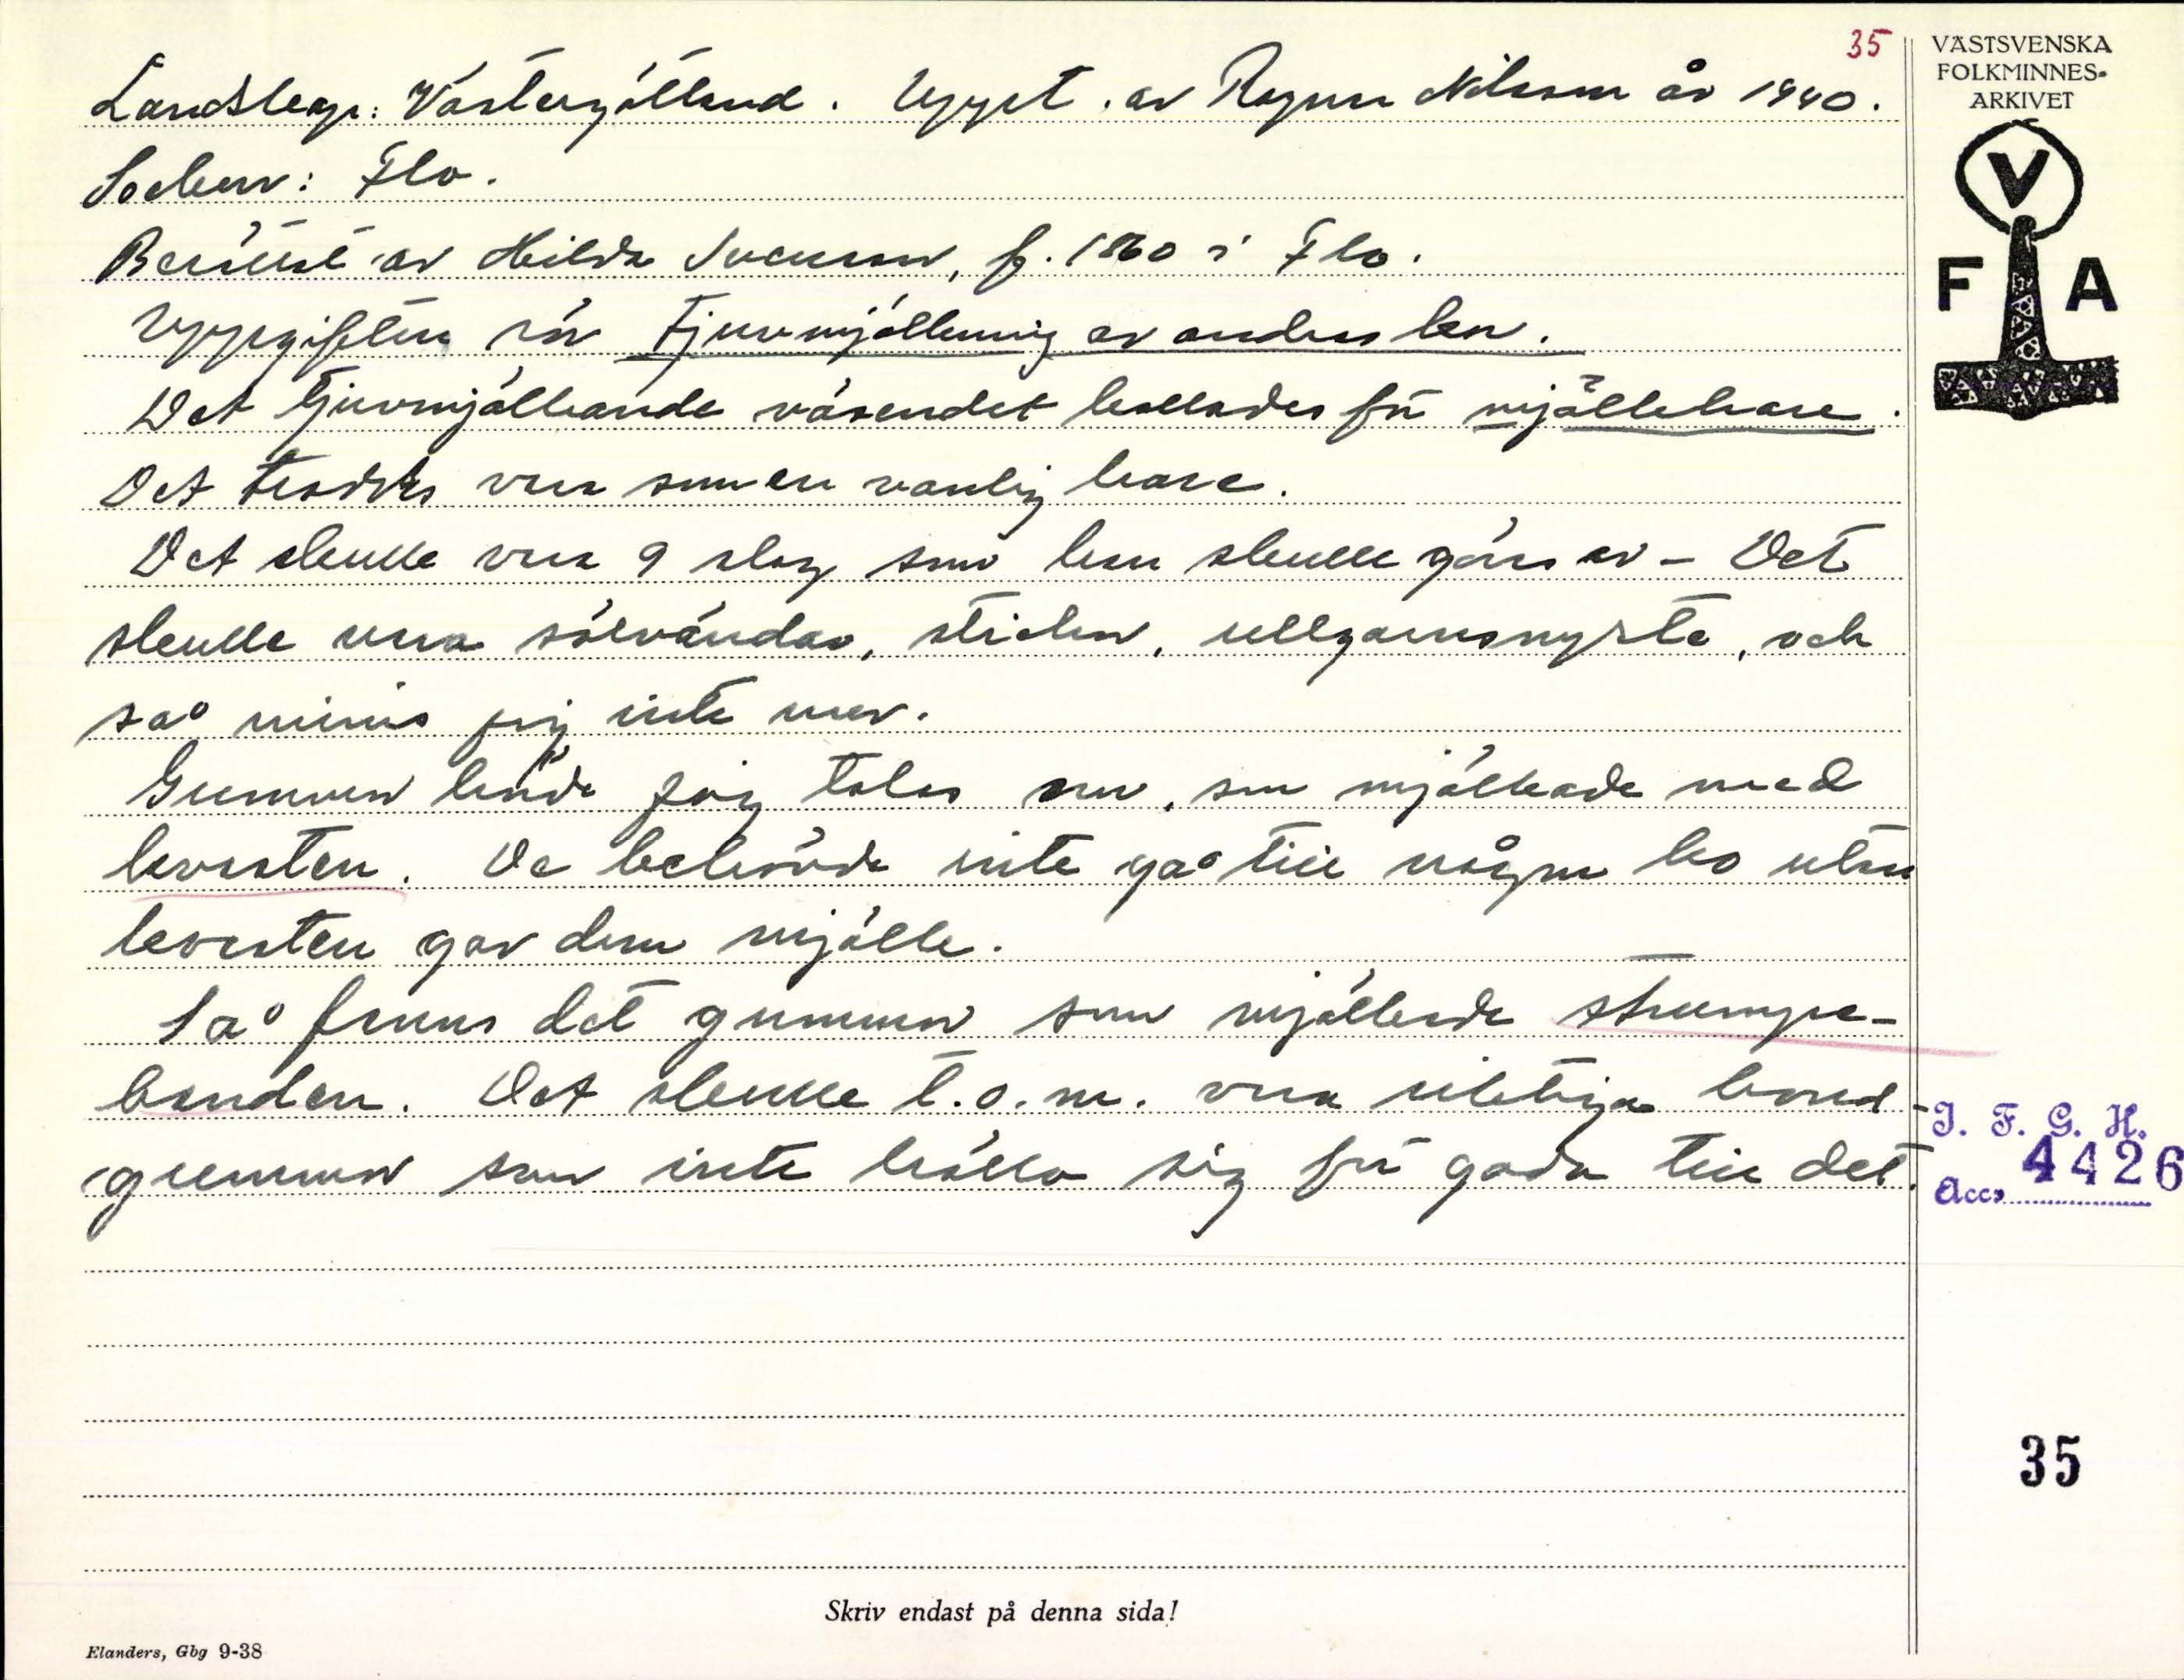 35
Landskap: Västergötland. Uppt. av Ragnar Nilsson år 1940.
Socken: Flo.
Berättat av Hilda Svensson, f. 1860 i Flo.
Uppgiften rör Tjuvmjölkning av andras kor.
Det tjuvmjölkande väsendet kallades för mjölkhare.
Det troddes vara som en vanlig hare.
Det skulle vara 9 slag som han skulle göras av - Det
skulle vara sölvändar, stickor, ullgarnsnysta, och
så minns jag inte mer.
Gummor hörde jag talas om, som mjölkade med
kvasten. De behövde inte gå till någon ko utan
kvasten gav dem mjölk.
Så fanns det gummor som mjölkade strumpe-
banden. Det skulle t.o.m. vara riktiga bond-
gummor som inte höllo sig för goda till det.
VÄSTSVENSKA
FOLKMINNES-
ARKIVET
V
F A
I. F. G. H.
Acc. 4426
35
Skriv endast på denna sida!
Elanders, Gbg 9-38